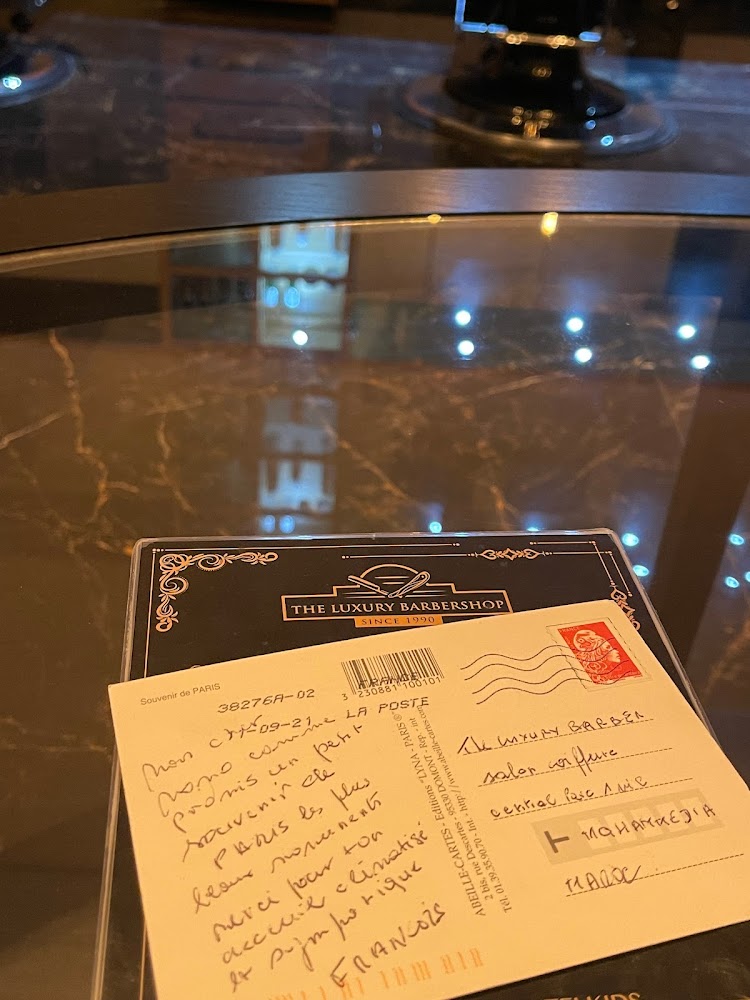 THE LUXURY BARBERSHOP
SINCE 1990
Souvenir de PARIS
38276A-02
-09-21 LA POSTE
FRANCE
3 230881 100101
mon cher
momo comme
promis un petit
souvenir de
PARIS les plus
beaux monuments
merci pour ton
accueil climatisé
et sympatique
FRANCOIS
ABEILLE-CARTES - Editions "LYNA - PARIS"®
2 bis, rue Descartes - 95330 DOMONT - Rép. - Int.
Tél. 01.39.35.90.70 - Int. : http://www.abeille-cartes.com
The LUXURY BARBER
salon coiffure
central Parc
MOHAMMEDIA
MAROC
KIDS